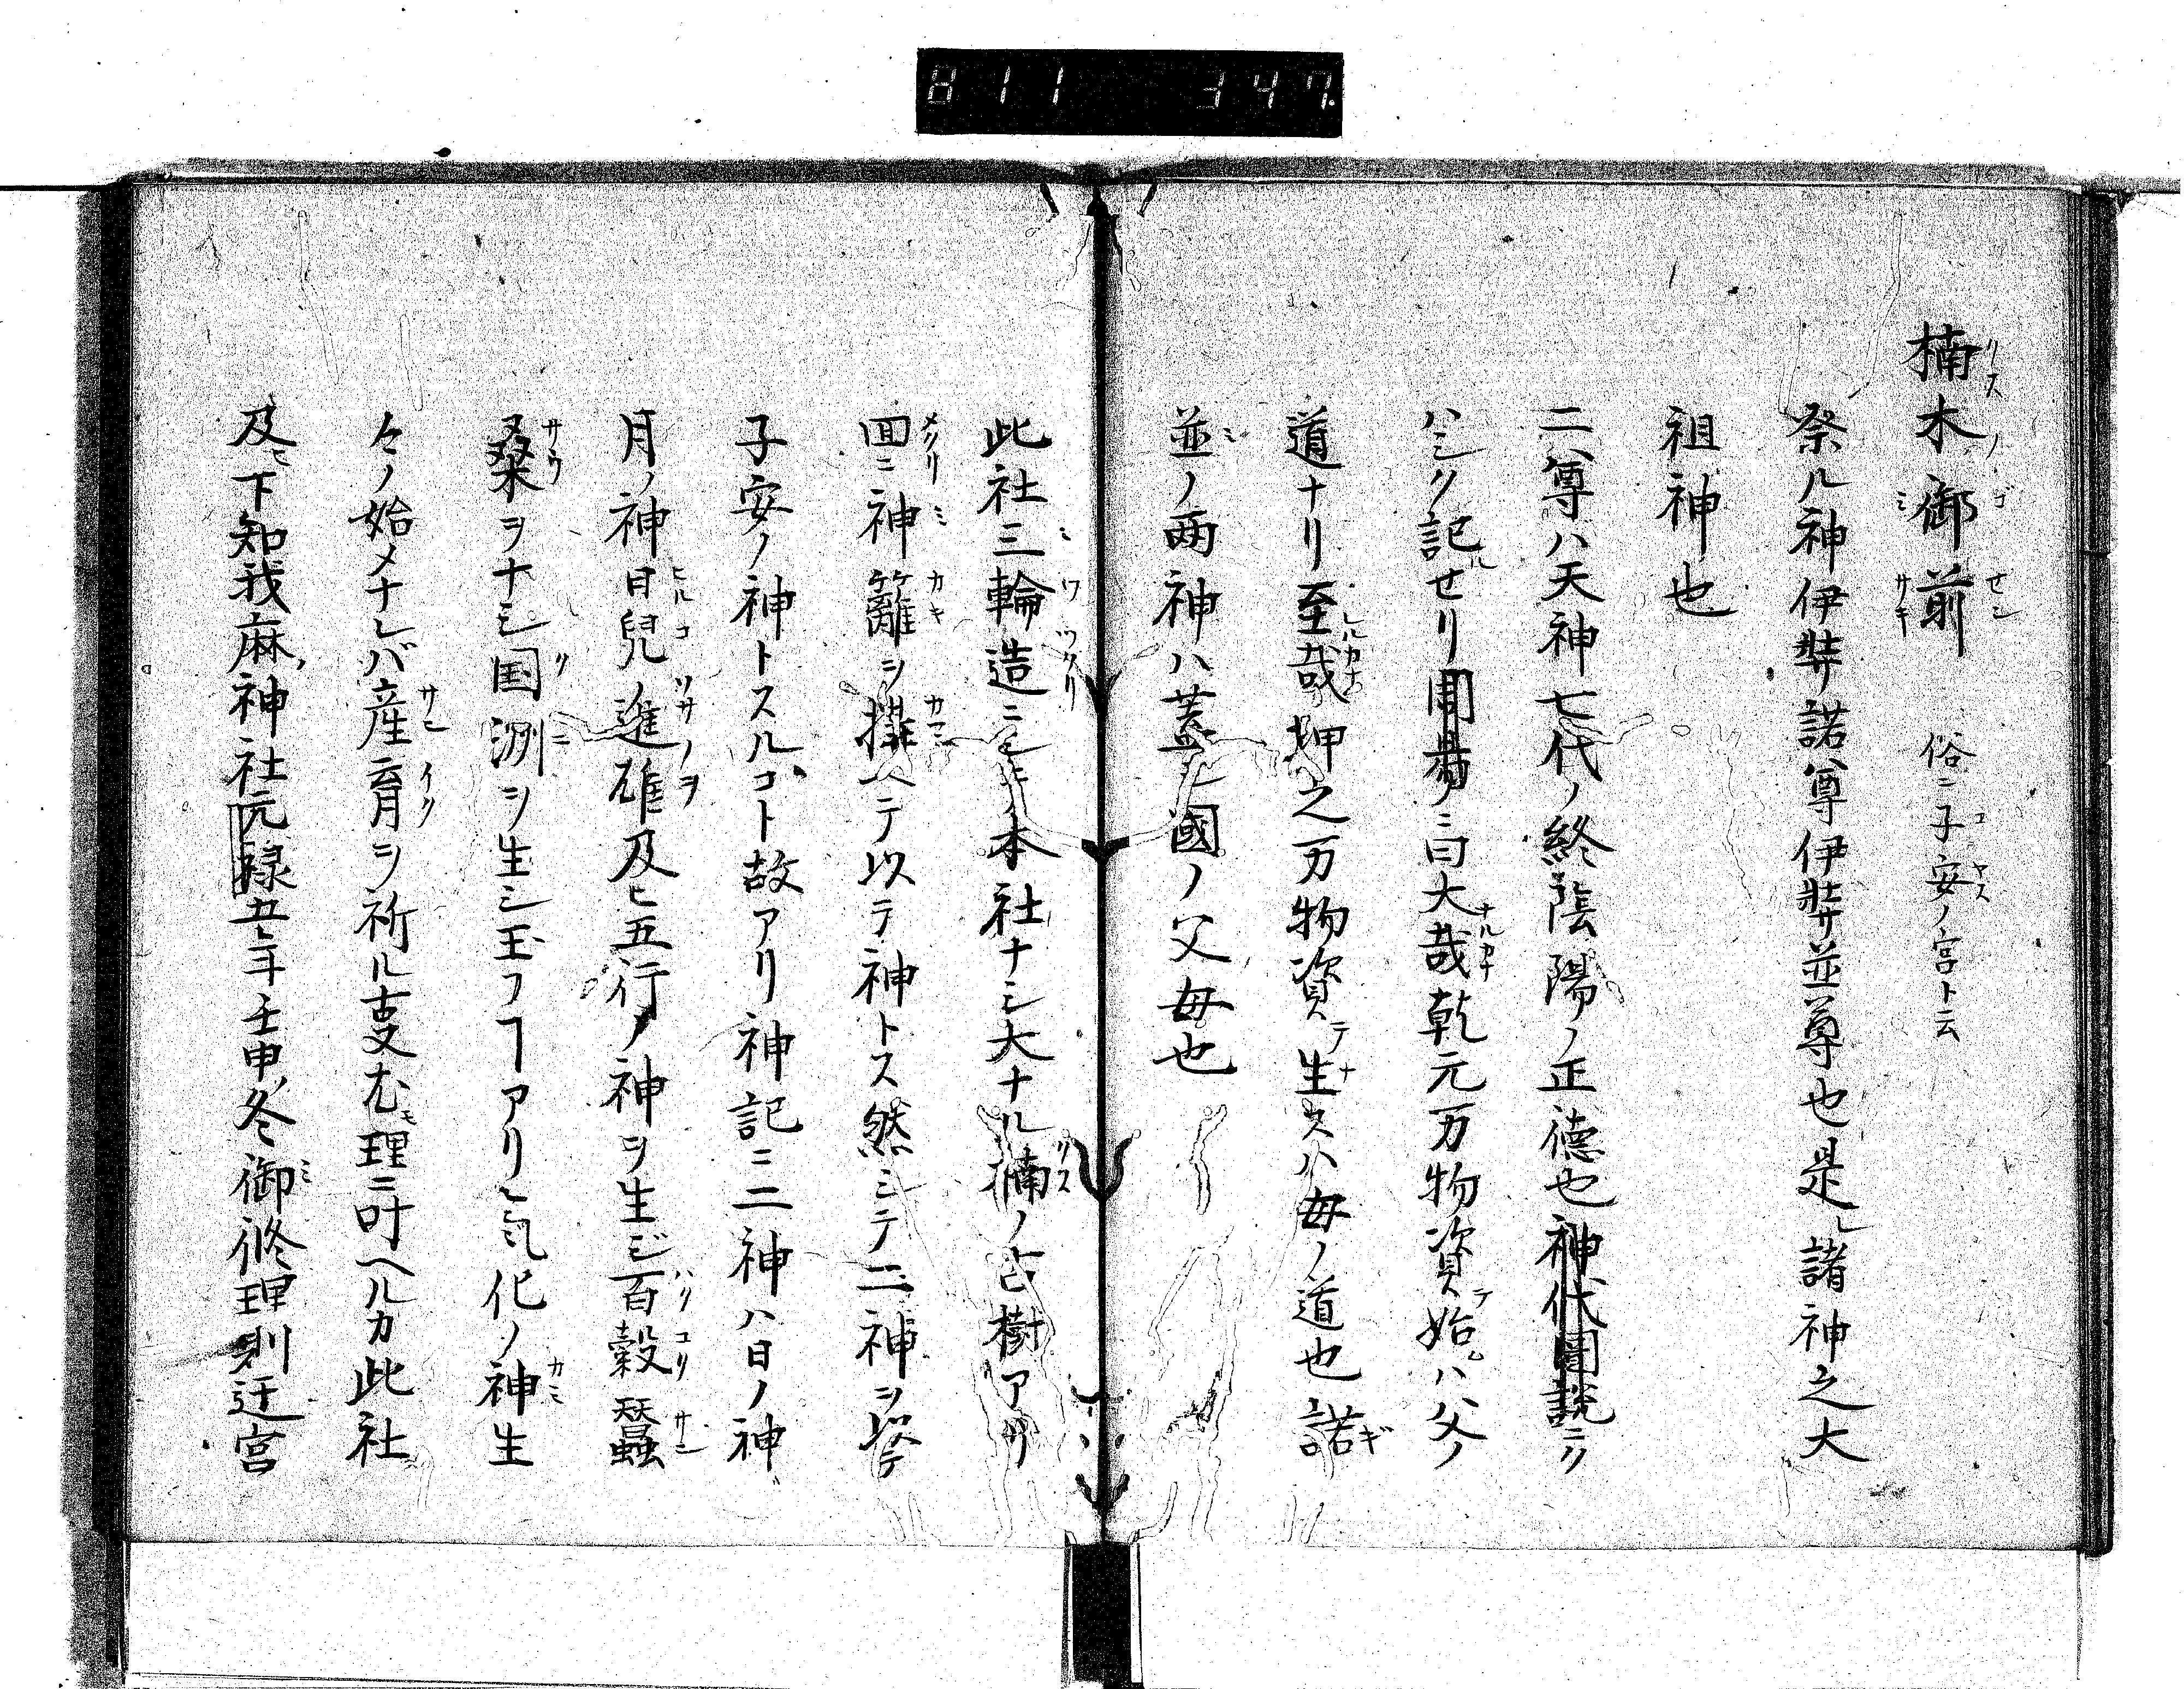 811 347.
楠木御前 俗ニ子安ノ宮ト云
祭ル神伊弉諾尊伊弉並尊也是レ諸神之大
祖神也
二尊ハ天神七代ノ終陰陽ノ正徳也神代圖説ニク
ハシク記せリ周易ニ曰大哉乾元万物資テ始ムハ父ノ
道ナリ至哉坤之万物資テ生スハ母ノ道也諾
並ノ両神ハ蓋シ國ノ父母也
此社三輪造ニシテ本社ナシ大ナル楠ノ古樹アリ
囬ニ神籬ヲ搆ヘテ以テ神トス然シテ二神ヲ以テ
子安ノ神トスルコト故アリ神記ニ二神ハ日ノ神
月ノ神日兒進雄及ヒ五行ノ神ヲ生ジ百穀蠶
桑ヲナシ国洲ヲ生シ玉フヿアリ氣化ノ神生
々ノ始メナレバ産育ヲ祈ル叓尤モ理ニ叶ヘルカ此社
及ヒ下知我麻神社元禄五年壬申冬御修理則迁宮